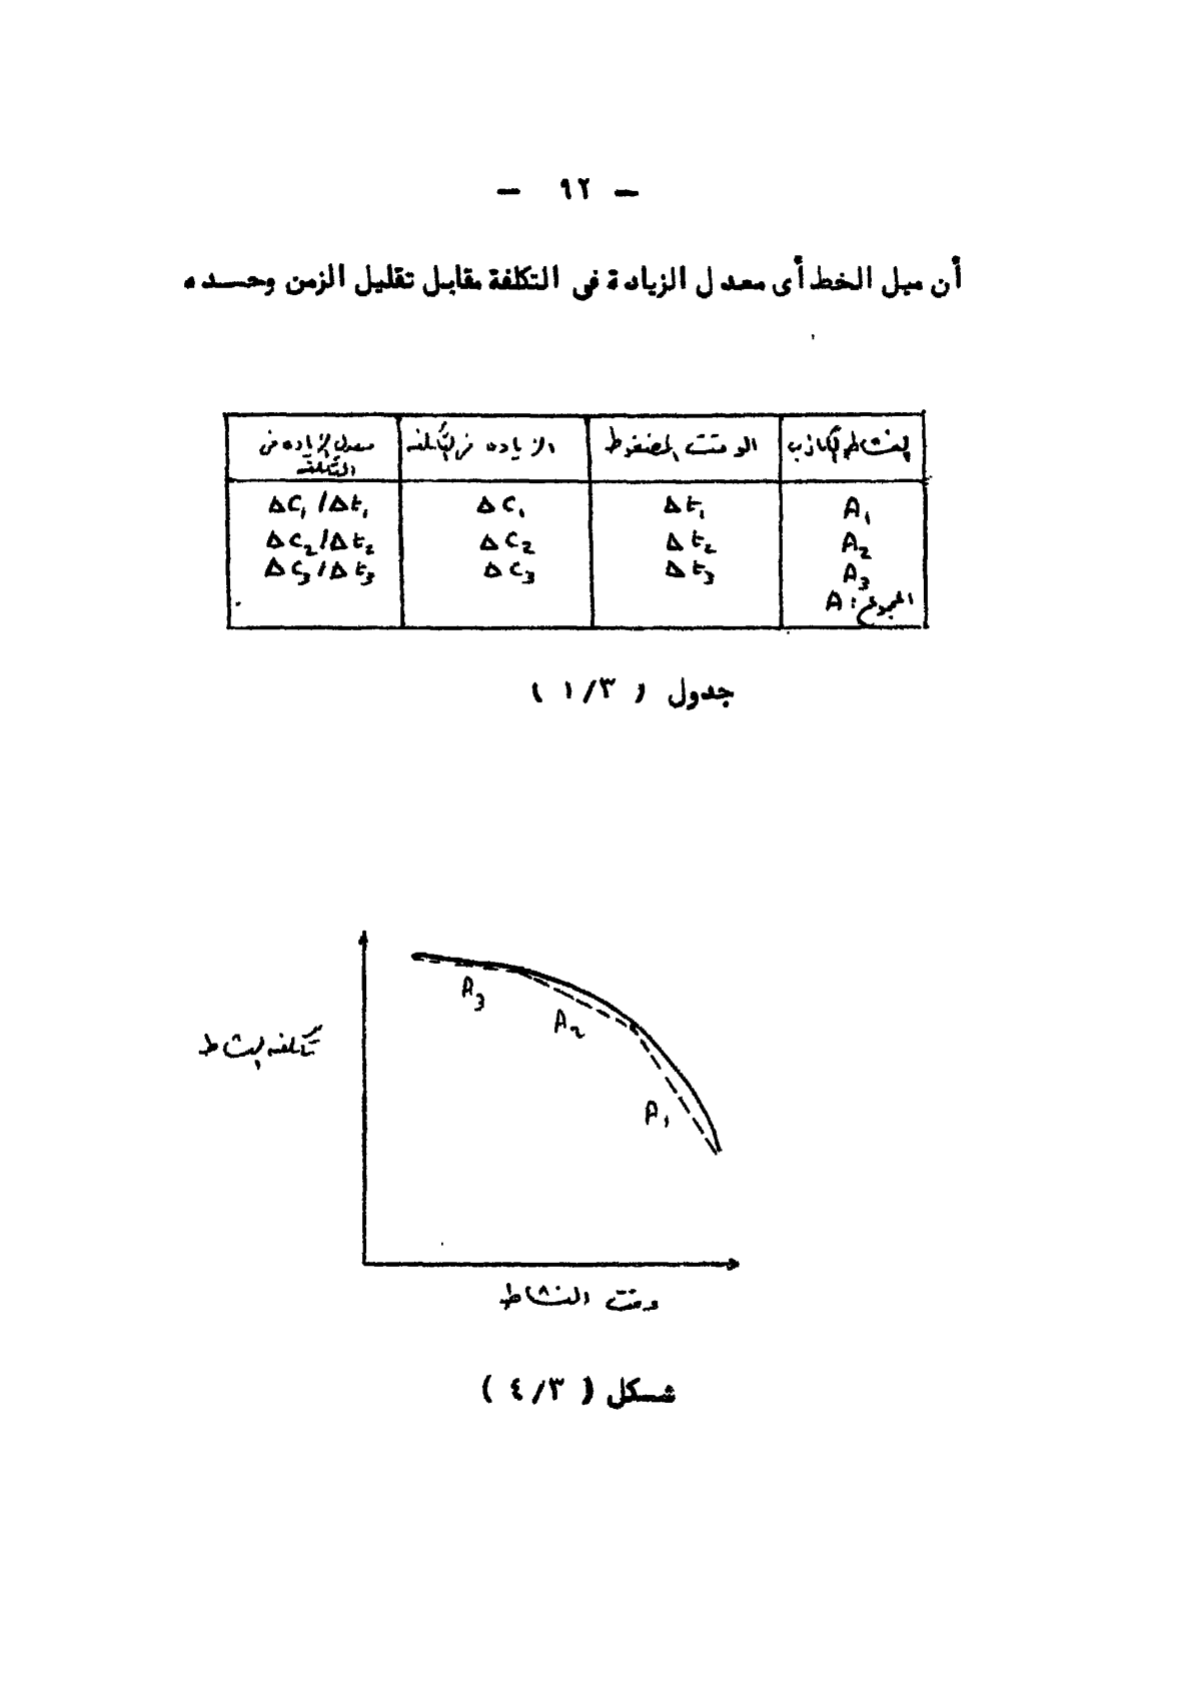 — ٩٢ —
أن ميل الخط أى معدل الزيادة فى التكلفة مقابل تقليل الزمن وحسده
النشاط الكاذب الوقت المضغوط الزياده فى التكلفه معدل الزياده فى التكلفه
A₁ Δt₁ ΔC₁ ΔC₁/Δt₁
A₂ Δt₂ ΔC₂ ΔC₂/Δt₂
A₃ Δt₃ ΔC₃ ΔC₃/Δt₃
المجموع : A
جدول ( ١/٣ )
A₃
A₂
تكلفه النشاط
A₁
وقت النشاط
شكل ( ٤/٣ )